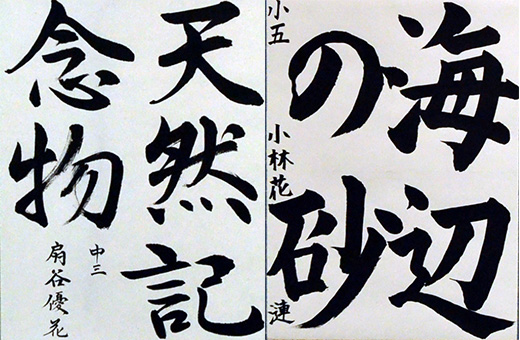 海辺
の砂
小五 小林花漣
天然記
念物
中三
扇谷優花